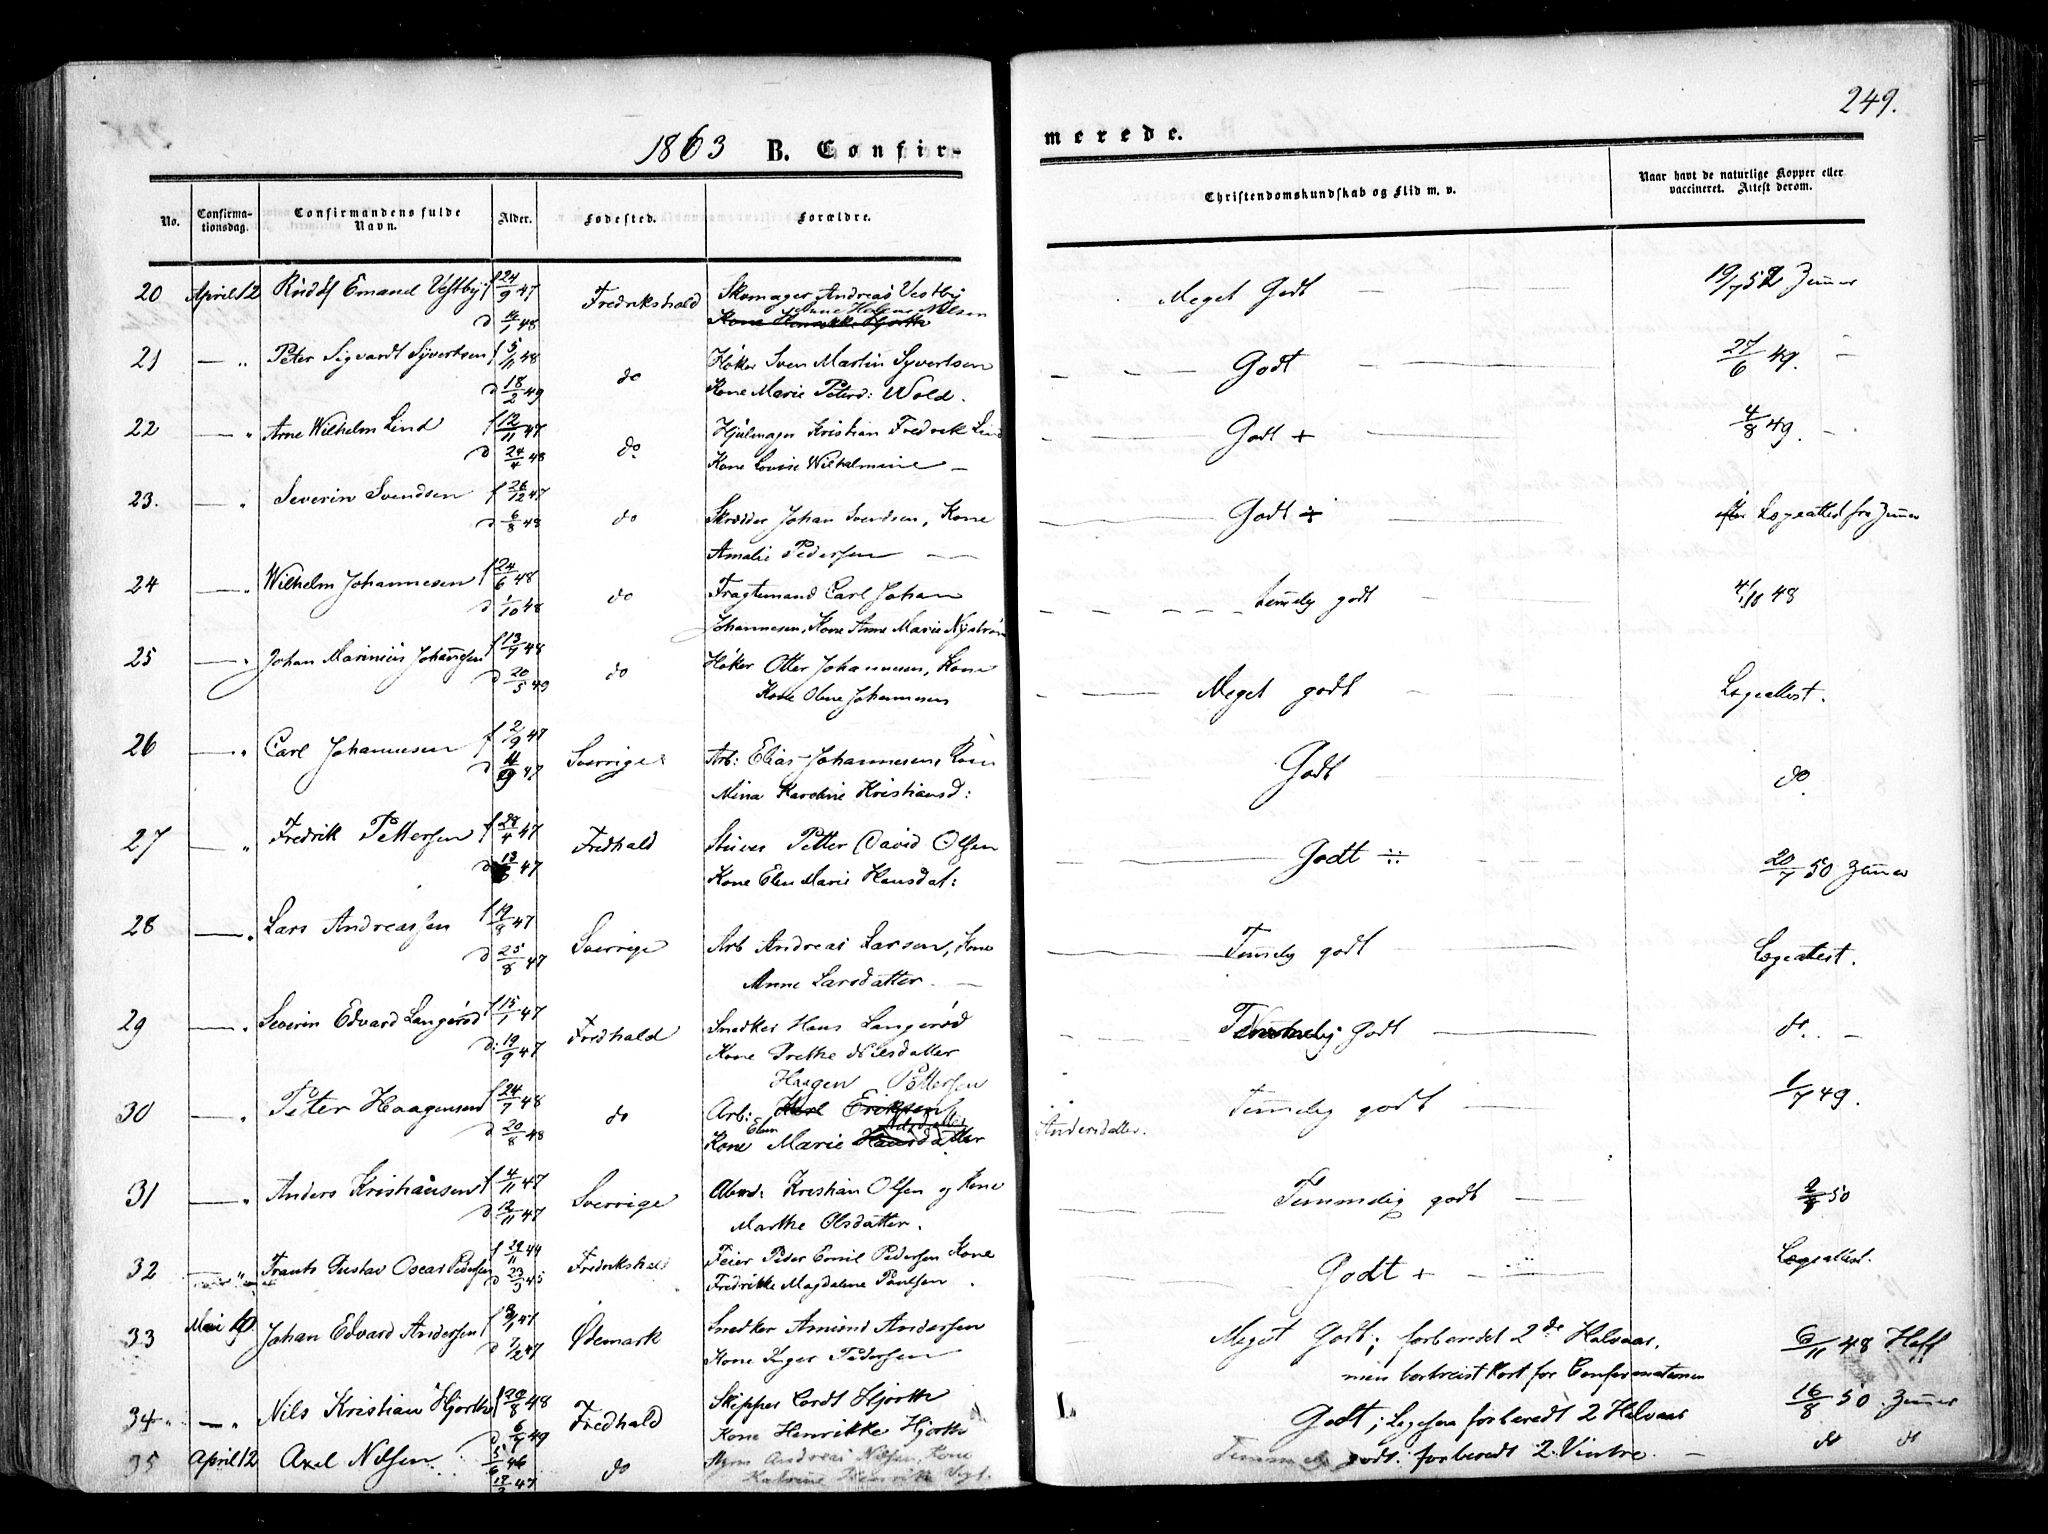 249.
1863 B. Confir- merede.
No. Confirmationsdag. Confirmandens fulde Navn. Alder. Fødested. Forældre. Christendomskundskab og Flid m. v. Naar havt de naturlige Kopper eller vaccineret. Attest derom.
20 April 12 Emanuel Vestby f 24/9 47 Fredrikshald Skomager Andreas Vestby Meget Godt 19/7 52
d 16/1 48 Anne Helene Nilsen
Kone Henrikke Hjorth
21 — „ Peter Sigvardt Syvertsen f 5/11 48 do Høker Sven Martin Syvertsen Godt 27/6 49.
d 18/2 49 Kone Marie Petersd: Wold.
22 — „ Arne Wilhelm Lind f 12/11 47 do Hjulmager Kristian Fredrik Lind Godt + 4/8 49.
d 24/4 48 Kone Lovise Wilhelmine —
23. — „ Severin Svendsen f 26/12 47 do Skrædder Johan Svendsen, Kone Godt ÷ Lægeattest fra
d 6/8 48 Amalie Pedersen —
24 — „ Wilhelm Johannesen f 24/6 48 do Fragtemand Carl Johan temelig godt 4/10 48
d 1/10 48 Johannesen, Kone Anne Marie Nystrøm
25 — „ Johan Marinius Johansen f 13/7 48 do Høker Otter Johannesen, Kone Meget godt Lægeattest.
d 20/5 49 Kone Oline Johannesen
26 — „ Carl Johannesen f 2/9 47 Sverrige Arb: Elias Johannesen, Kone Godt do.
d 11/9 47 Mina Karoline Kristiansd:
27 — „ Fredrik Pettersen f 28/4 47 Fredhald Stuver Petter David Olsen Godt ÷ 20/7 50
d 13/ 47 Kone Elen Marie Hansdat:
28 — „ Lars Andreassen f 19/8 47 Sverrige Arb Andreas Larsen, Kone Temelig godt Lægeattest.
d 25/8 47 Anne Larsdatter —
29 — „ Severin Edvard Langerød f 15/1 47 Fredhald Snedker Hans Langerød Temmelig Godt do.
d: 19/9 47 Kone Grethe Nilsdatter
Haagen Pettersen
30 — „ Peter Haagensen f 24/7 48 do Arb: Karl Eriksen Temelig godt 1/7 49.
d 20/8 48 Kone Elen Marie Hansdatter Andersdatter.
31 — „ Anders Kristiansen f 4/11 47 Sverrige Kristian Olsen og Kone Temmelig godt 50
d 12/11 47 Marthe Olsdatter.
32 — „ Frants Gustav Oscar Pedersen f 29/11 44 Fredrikshald Feier Peder Emil Pedersen Kone Godt + Lægeattest.
d 23/3 45 Fredrikke Magdalene Paulsen.
33 Mai 10 Johan Edvard Andersen f 3/1 47 Ødemark Snedker Amund Andersen Meget Godt; forberedt 2de Halvaar, 6/11 48 Hoff
d 7/2 47 Kone Inger Pedersen men bortreist kort for Confirmationen
34 — „ Nils Kristian Hjorth f 20/8 48 Fredhald Skipper Cordt Hjorth Godt; Ligesaa forberedt 2 Halvaar 16/8 50.
d 6/ 49 Kone Henrikke Hjorth
35 April 12 Axel Nilsen 5/6 46 do Andreas Nilsen, Kone Temmelig godt. forberedt 2. Vintre. do do
47 Katrine